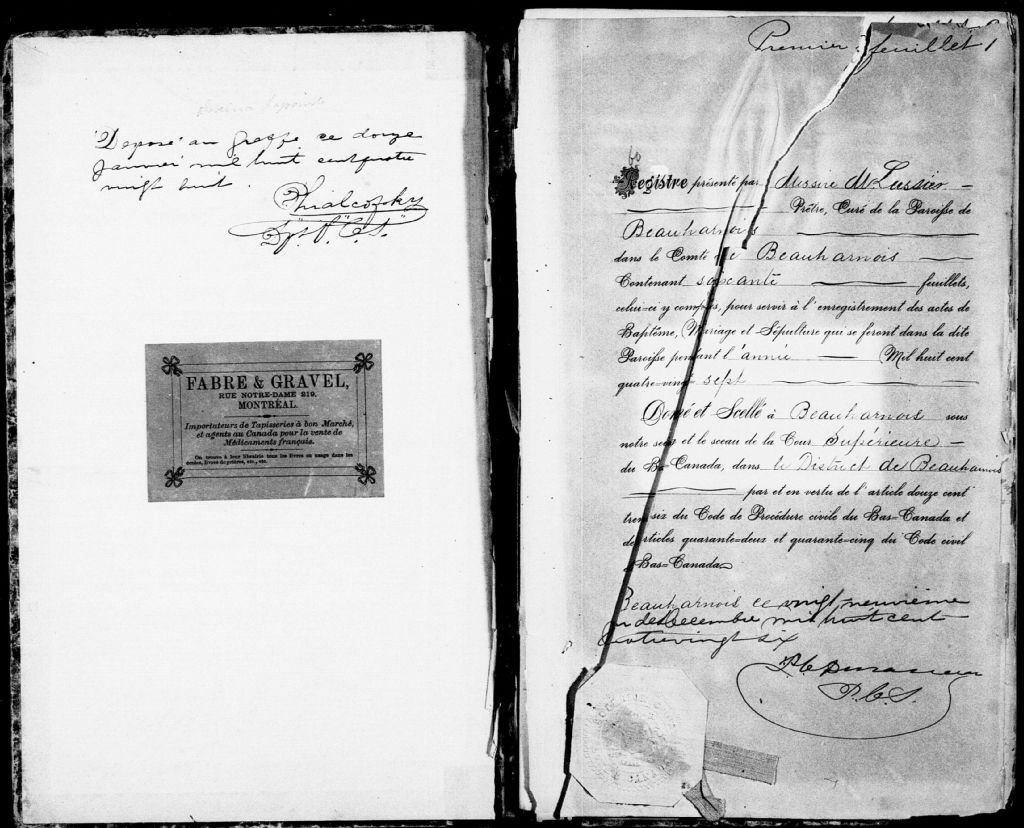 Déposé au greffe ce douze
janvier mil huit cent quatre
vingt huit.
FABRE & GRAVEL,
RUE NOTRE-DAME 219.
MONTRÉAL.
Importateurs de Tapisseries à bon Marché,
et agents au Canada pour la vente de
Médicaments français.
On trouve à leur librairie tous les livres en usage dans les
écoles, livres de prières, etc., etc.
Premier feuillet 1
60
Registre présenté par Messire M Lussier
Prêtre, Curé de la Paroisse de
Beauharnois
dans le Comté de Beauharnois
Contenant soixante feuillets,
celui-ci y compris, pour servir à l'enregistrement des actes de
Baptême, Mariage et Sépulture qui se feront dans la dite
Paroisse pendant l'année Mil huit cent
quatre-vingt sept
Donné et Scellé à Beauharnois sous
notre seing et le sceau de la Cour Supérieure
du Bas-Canada, dans le District de Beauharnois
par et en vertu de l'article douze cent
trente-six du Code de Procédure civile du Bas-Canada et
des articles quarante-deux et quarante-cinq du Code civil
Bas-Canada
Beauharnois ce vingt neuvième
jour de Décembre mil huit cent
quatrevingt six
P.C.S.